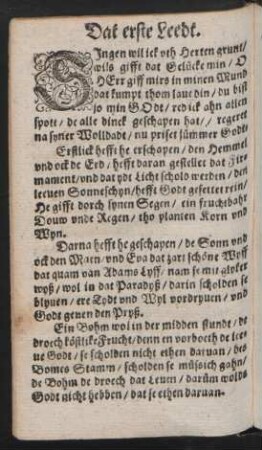 Dat erste Leedt.
SIngen wil ick vth Herten grunt/
wils gifft dat Gelücke min/ O
HErr giff mirs in minen Mund
dat kumpt thom laue din/ du bist
jo min GOdt/ red ick ahn allen
spott/ de alle dinck geschapen hat// regeret
na syner Wolldadt/ nu priset jümmer Godt/
Erstlick hefft he erschapen/ den Hemmel
vnd ock de Erd/ hefft daran gestellet dat Fir
mament/ vnd dat yds Licht schold werden/ den
leeuen Sonneschyn/ hefft Godt gesettet rein/
He gifft dorch synen Segen/ ein fruchtbahr
Douw vnde Regen/ tho planten Korn vnd
Wyn.
Darna hefft he geschapen/ de Sonn vnd
ock den Maen/ vnd Eva dat zart schöne Wyff
dat quam van Adams Lyff/ nam se mit groter
wyß/ wol in dat Paradyß/ darin scholden se
blyuen/ ere Tydt vnd Wyl vordryuen/ vnd
Godt geuen den Pryß.
Ein Bohm wol in der midden stundt/ de
droech köstlike Frucht/ denn en vorboeth de lee-
ue Godt/ se scholden nicht ethen daruan/ des
Bomes Stamm/ scholden se müssich gahn/
de Bohm de droech dat Leuen/ darüm wolde
Godt nicht hebben/ dat se ethen daruan.